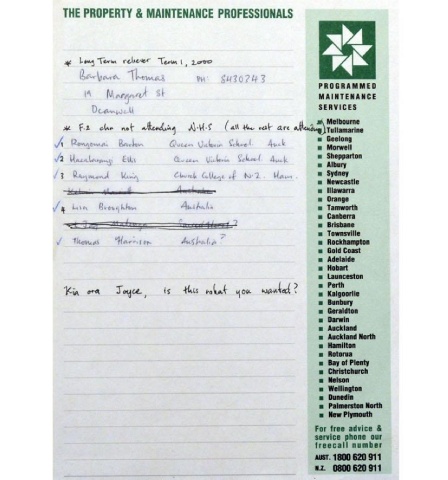 THE PROPERTY & MAINTENANCE PROFESSIONALS
* Long Term reliever Term 1, 2000
Barbara Thomas PH: 8430243
19 Margaret St
* F.2 chn not attending N.H.S (all the rest are attending)
✓1 Rongomai Queen Victoria School. Auck
✓2 Ellis Queen Victoria School. Auck
✓3 Raymond King Church College of N.Z. Ham.
✓4 Lisa Broughton Australia
✓ Thomas Harrison Australia?
Kia ora Joyce, is this what you wanted?
PROGRAMMED
MAINTENANCE
SERVICES
Melbourne
Tullamarine
Geelong
Morwell
Shepparton
Albury
Sydney
Newcastle
Illawarra
Orange
Tamworth
Canberra
Brisbane
Townsville
Rockhampton
Gold Coast
Adelaide
Hobart
Launceston
Perth
Kalgoorlie
Bunbury
Geraldton
Darwin
Auckland
Auckland North
Hamilton
Rotorua
Bay of Plenty
Christchurch
Nelson
Wellington
Dunedin
Palmerston North
New Plymouth
For free advice &
service phone our
freecall number
AUST. 1800 620 911
N.Z. 0800 620 911